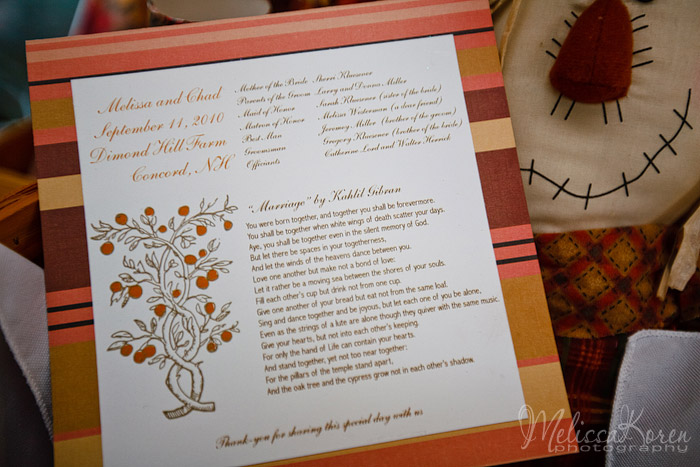 Melissa and Chad
September 11, 2010
Dimond Hill Farm
Concord, NH
Mother of the Bride Sherri Kluesener
Parents of the Groom Larry and Donna Miller
Maid of Honor Sarah Kluesener (sister of the bride)
Matron of Honor Melissa Wisterman (a dear friend)
Best Man Jeremey Miller (brother of the groom)
Groomsman Gregory Kluesener (brother of the bride)
Officiants Catherine Lord and Walter Herrick
"Marriage" by Kahlil Gibran
You were born together, and together you shall be forevermore.
You shall be together when white wings of death scatter your days.
Aye, you shall be together even in the silent memory of God.
But let there be spaces in your togetherness,
And let the winds of the heavens dance between you.
Love one another but make not a bond of love:
Let it rather be a moving sea between the shores of your souls.
Fill each other's cup but drink not from one cup.
Give one another of your bread but eat not from the same loaf.
Sing and dance together and be joyous, but let each one of you be alone,
Even as the strings of a lute are alone though they quiver with the same music.
Give your hearts, but not into each other's keeping.
For only the hand of Life can contain your hearts.
And stand together, yet not too near together:
For the pillars of the temple stand apart,
And the oak tree and the cypress grow not in each other's shadow.
Thank-you for sharing this special day with us
Melissa Koren
photography